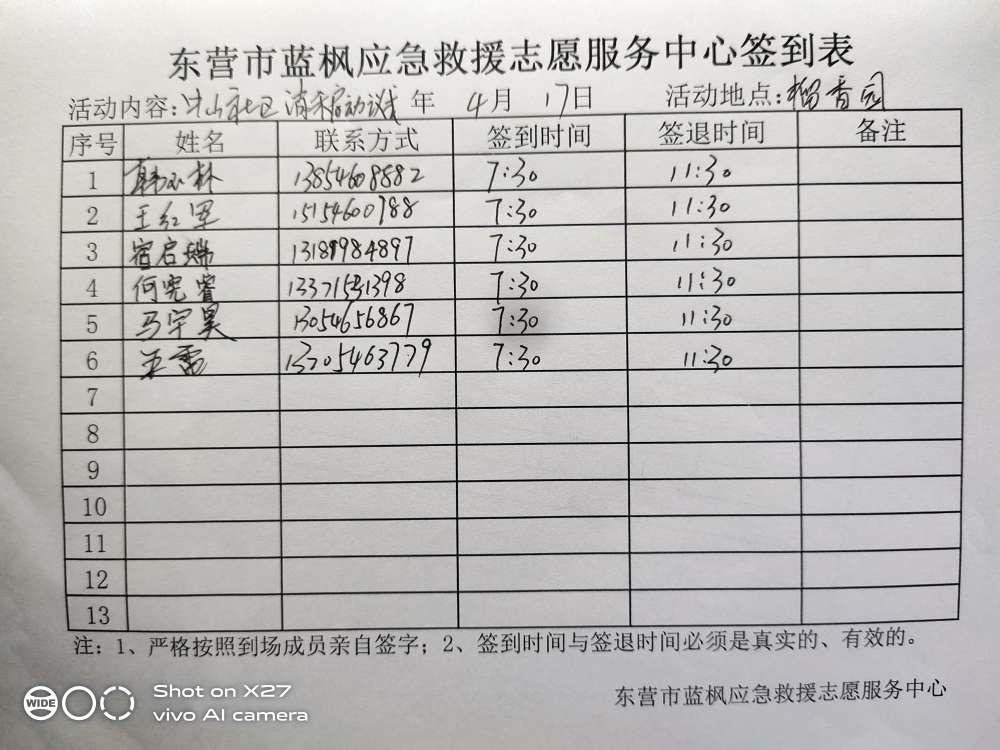 东营市蓝枫应急救援志愿服务中心签到表
活动内容: 社区 年 4月 17日 活动地点: 园
序号 姓名 联系方式 签到时间 签退时间 备注
1 韩 林 13854608882 7:30 11:30
2 王红军 15154600988 7:30 11:30
3 宿启瑞 13189984897 7:30 11:30
4 何宪睿 7:30 11:30
5 马宇昊 13054656867 7:30 11:30
6 王雷 7:30 11:30
7
8
9
10
11
12
13
注:1、严格按照到场成员亲自签字;2、签到时间与签退时间必须是真实的、有效的。
东营市蓝枫应急救援志愿服务中心
WIDE Shot on X27
vivo AI camera